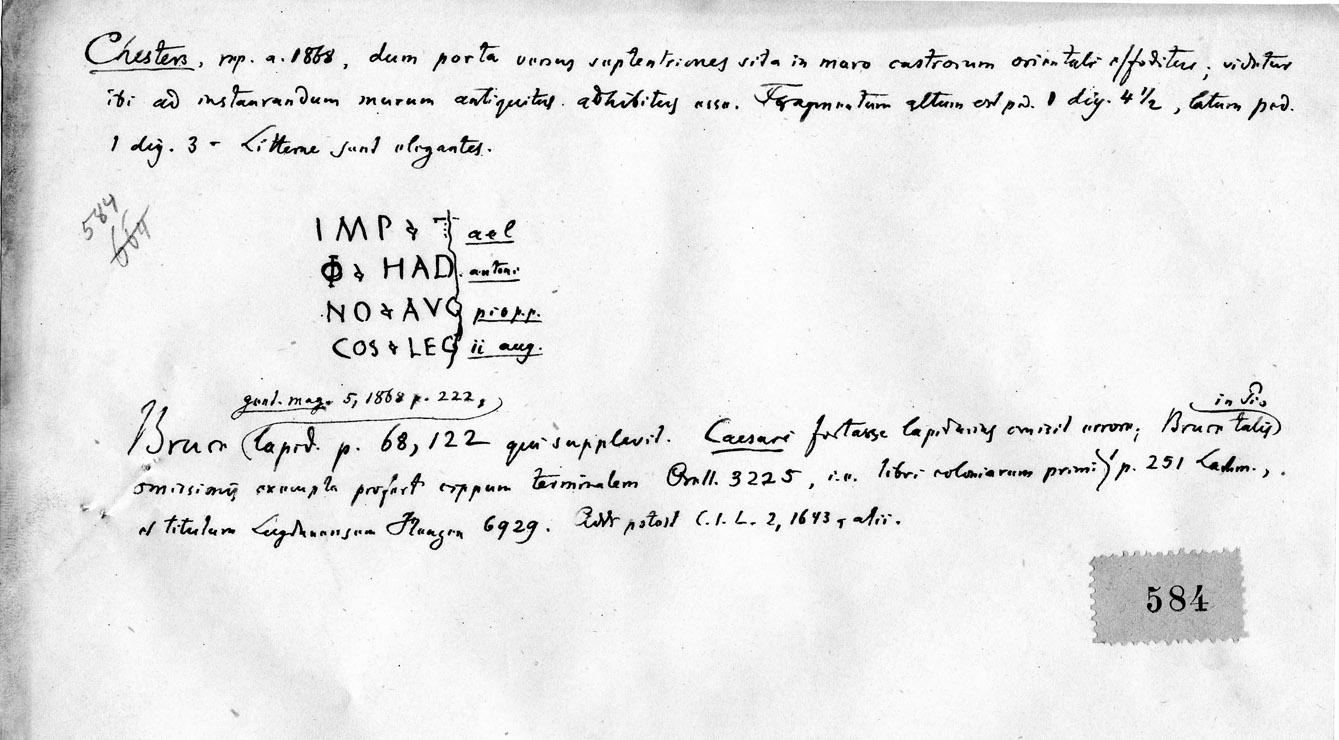 Chesters, rep. a. 1868, dum porta versus septentriones sita in muro castrorum orientali effoditur; videtur
ibi ad instaurandum murum antiquitus adhibitus esse. Fragmentum altum est ped. 1 dig. 4 1/2, latum ped.
1 dig. 3 - Litterae sunt elegantes.
584
664
IMP T ael
Φ HAD antoni
NO AVG pio p.p.
COS LEG ii aug.
gent. mag. 5, 1868 p. 222,
in Pio
Bruce lapid. p. 68, 122 qui supplevit. Caesari fortasse lapidarius omisit errore; Bruce talis
omissionis exempla profert cippum terminalem Orell. 3225, i.e. libri coloniarum primi p. 251 Lachm.,
et titulum Lugdunensem Henzen 6929. Adde potest C.I.L. 2, 1643, alii.
584